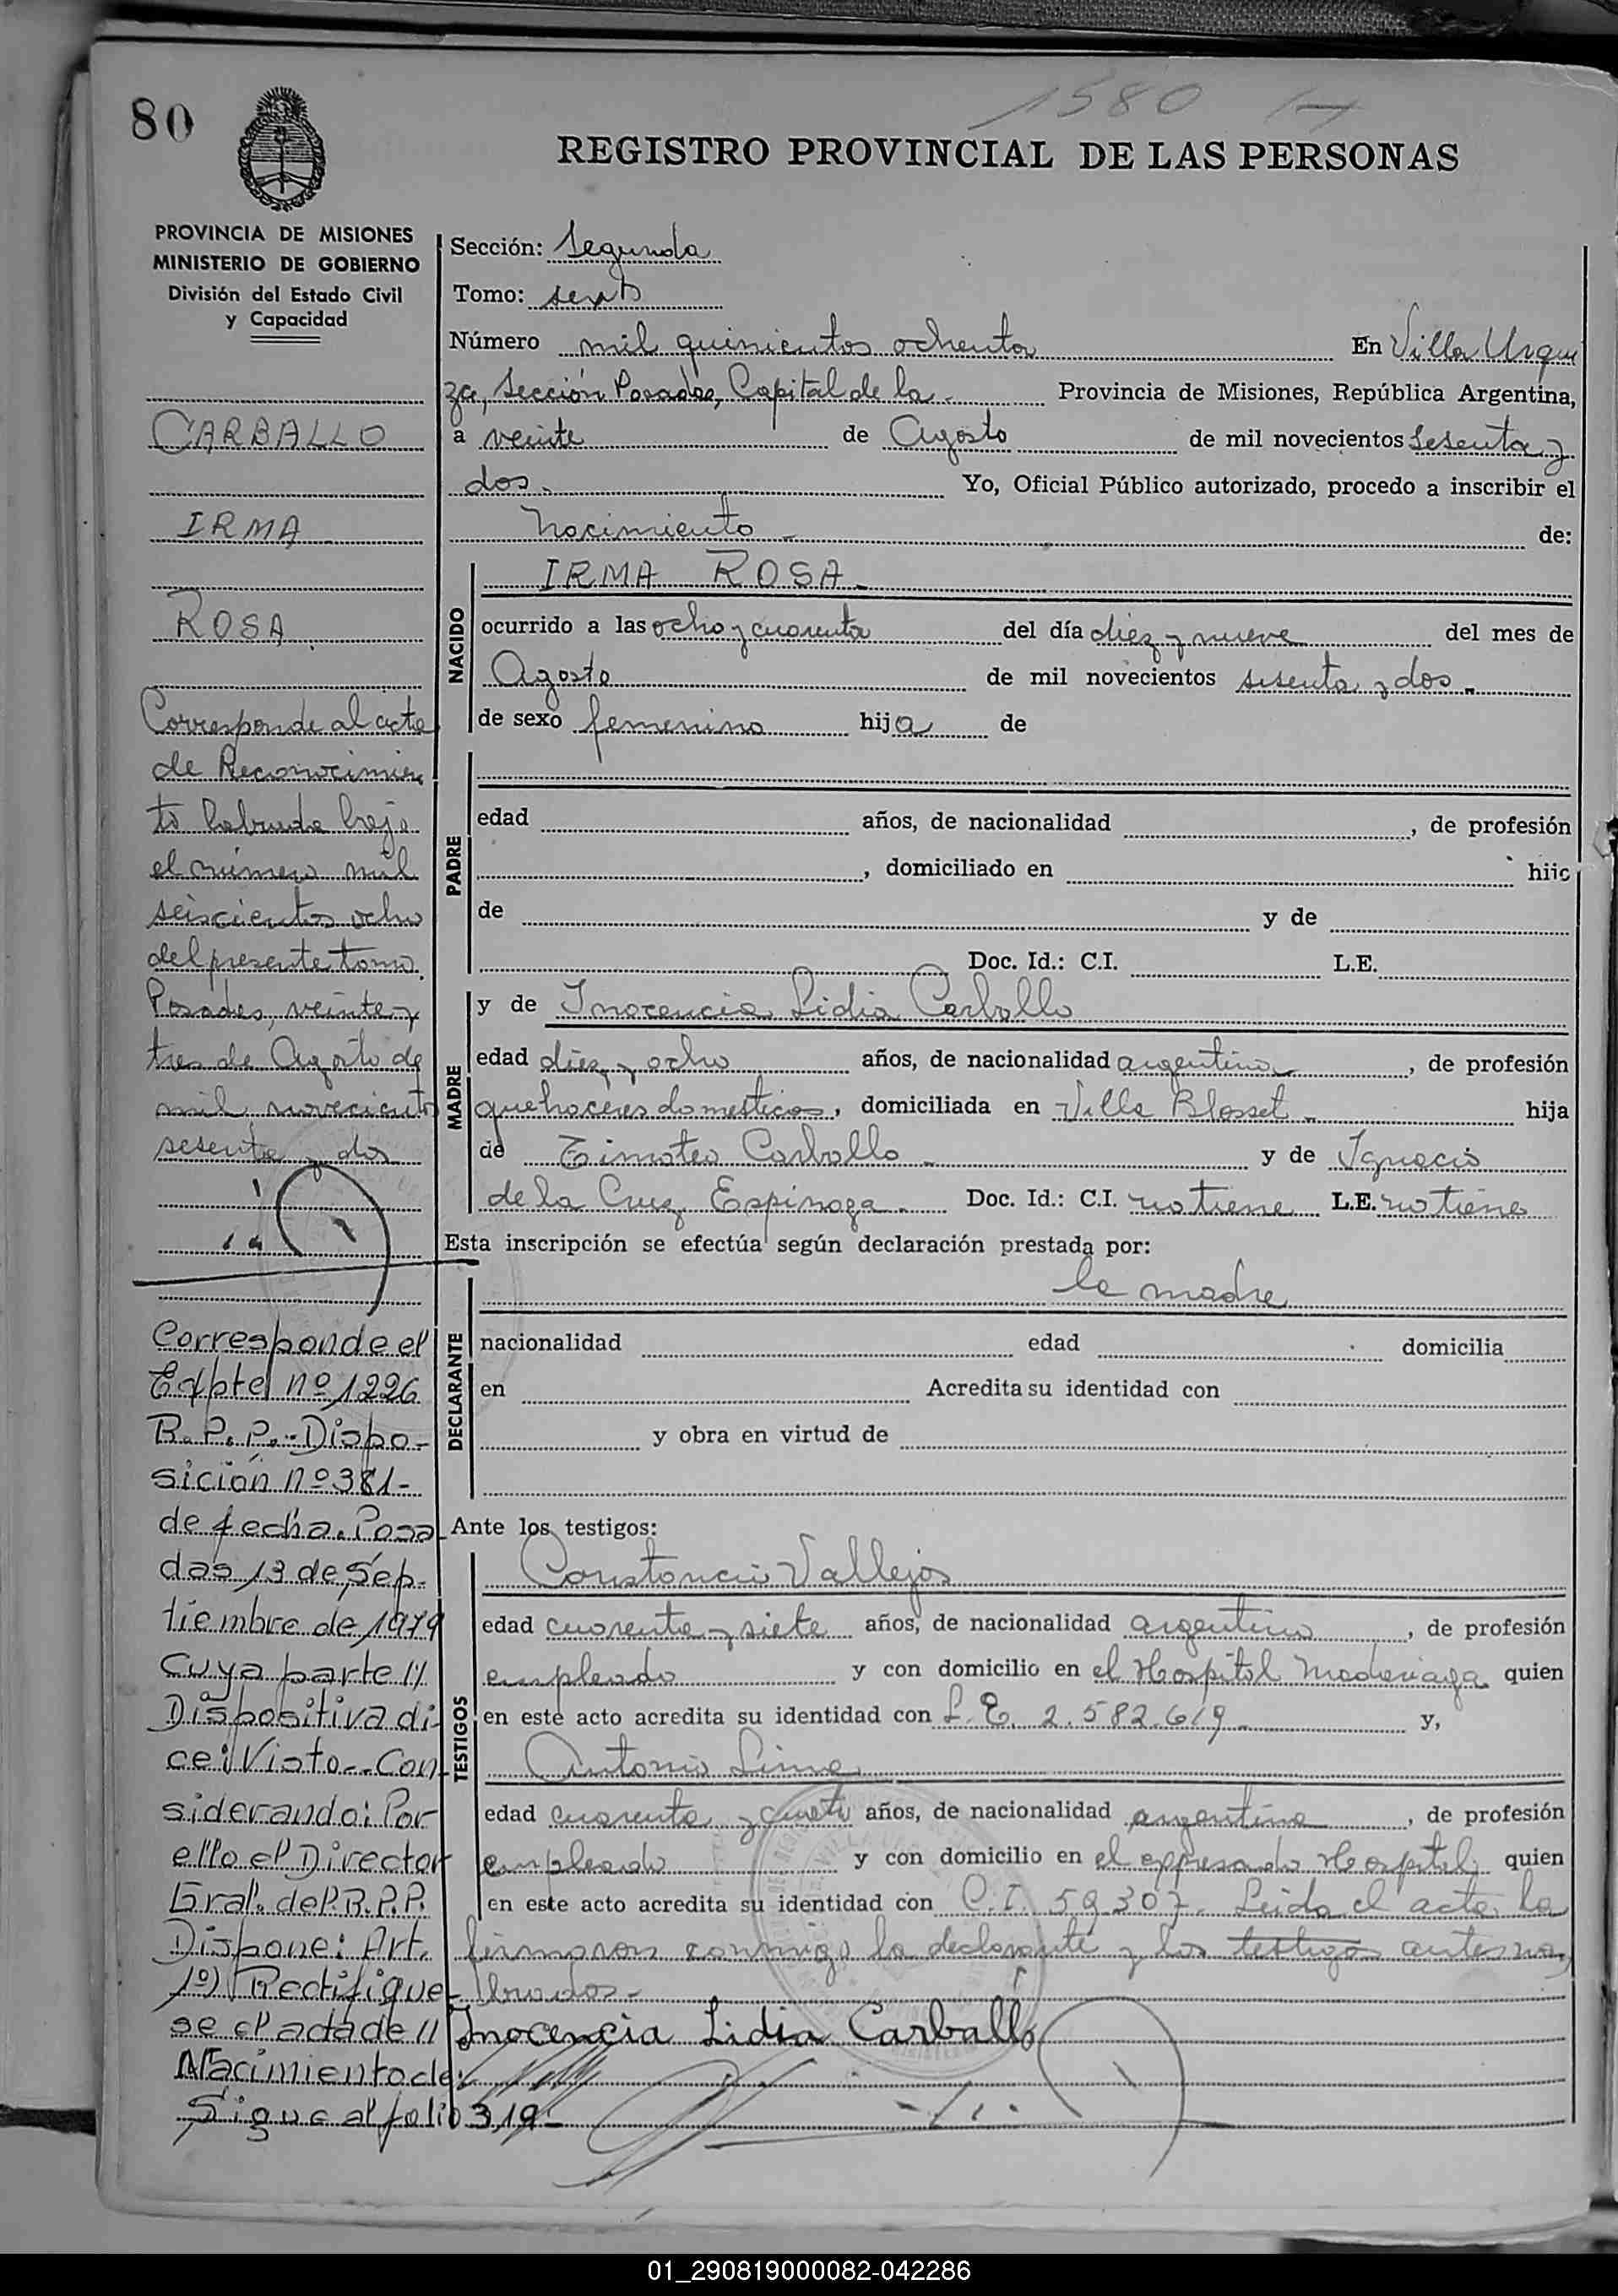 80
1580
REGISTRO PROVINCIAL DE LAS PERSONAS
PROVINCIA DE MISIONES
MINISTERIO DE GOBIERNO
División del Estado Civil
y Capacidad
CARBALLO
IRMA
ROSA
Corresponde al acta
de Reconocimien
to labrada bajo
el número mil
seiscientos ocho
del presente tomo.
Posadas, veinte y
tres de Agosto de
mil novecientos
sesenta y dos
Corresponde el
Expte nº 1226
R.P.P.-Dispo-
sición nº 381-
de fecha. Posa
das 13 de Sep-
tiembre de 1979
Cuya parte //
Dispositiva di-
ce: Visto-.-Con
siderando: Por
ello el Director
Gral. del R.P.P.
Dispone: Art.
1º) Rectifique-
se el acta de //
Nacimiento de:
Sigue al folio 319-
Sección: Segunda
Tomo: sexto
Número mil quinientos ochenta En Villa Urqui
za, Sección Posadas, Capital de la - Provincia de Misiones, República Argentina,
a veinte de Agosto de mil novecientos sesenta y
dos. Yo, Oficial Público autorizado, procedo a inscribir el
Nacimiento - de:
NACIDO
IRMA ROSA -
ocurrido a las ocho y cuarenta del día diez y nueve del mes de
Agosto de mil novecientos sesenta y dos -
de sexo femenino hija de
PADRE
edad años, de nacionalidad , de profesión
, domiciliado en hijo
de y de
Doc. Id.: C.I. L.E.
MADRE
y de Inocencia Lidia Carballo
edad diez y ocho años, de nacionalidad argentina , de profesión
quehaceres domesticos, domiciliada en Villa Blosset - hija
de Timoteo Carballo - y de Ignacia
de la Cruz Espinoza - Doc. Id.: C.I. no tiene L.E. no tiene
Esta inscripción se efectúa según declaración prestada por:
DECLARANTE
la madre
nacionalidad edad domicilia
en Acredita su identidad con
y obra en virtud de
Ante los testigos:
TESTIGOS
Constancio Vallejos
edad cuarenta y siete años, de nacionalidad argentino , de profesión
empleado y con domicilio en el Hospital Madariaga quien
en este acto acredita su identidad con L.E. 2.582.619 - y,
Antonio Lima
edad cuarenta y años, de nacionalidad argentino , de profesión
empleado y con domicilio en el expresado Hospital quien
en este acto acredita su identidad con C.I. 59307. Leida el acta la
firmaron conmigo la declarante y los testigos antes nom
brados -
Inocencia Lidia Carballo
01_290819000082-042286